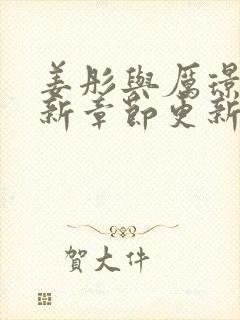 姜彤與厲璟
新章節更新
賀大件